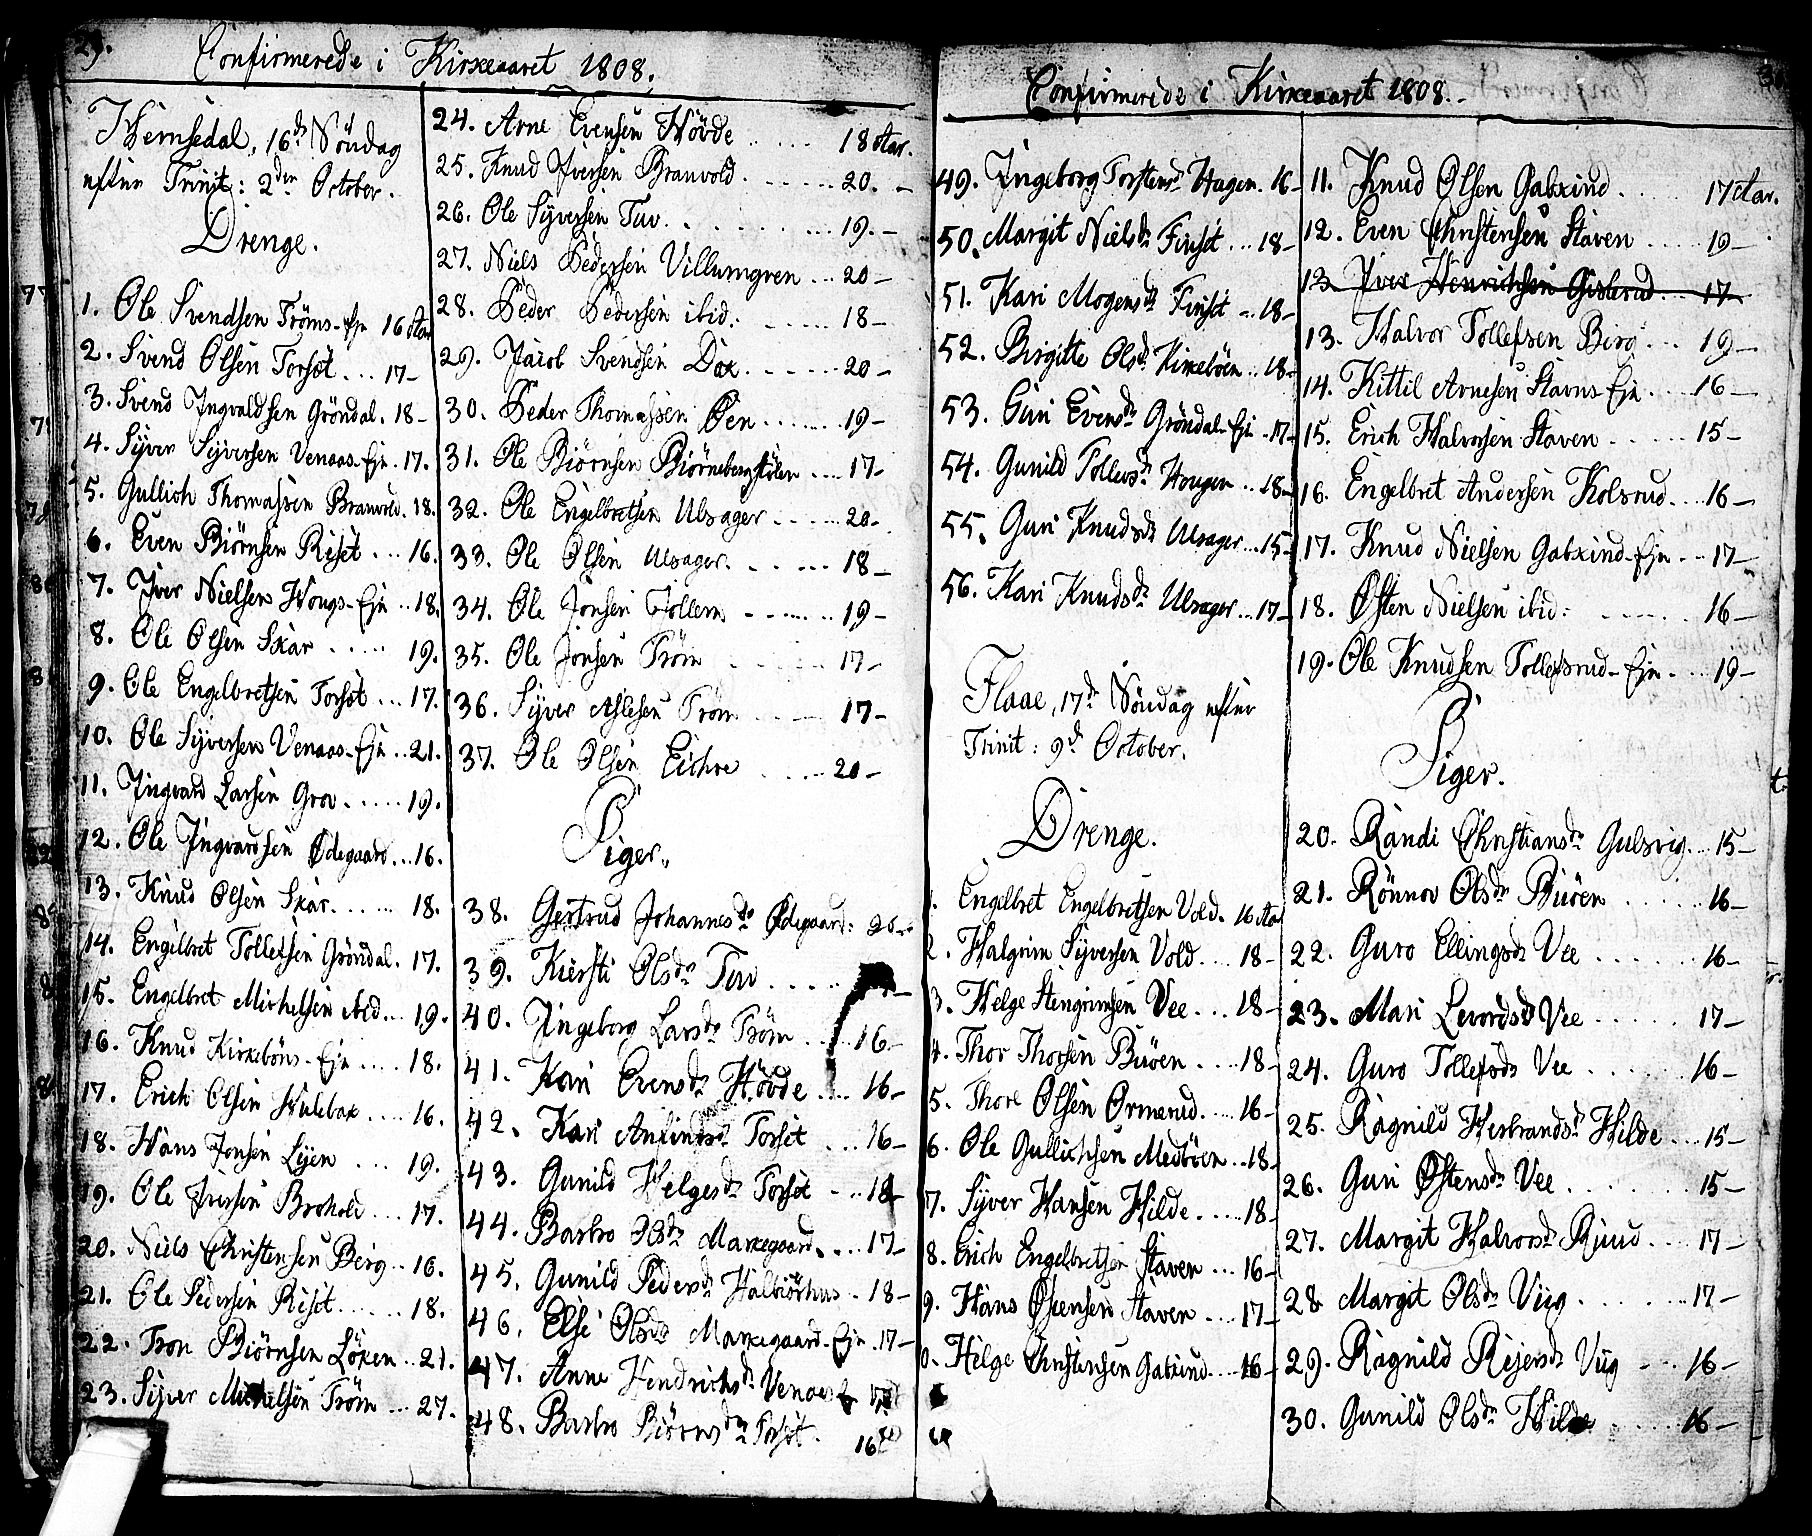 29.
Confirmerede i Kirkeaaret 1808.
Hemsedal, 16de Söndag
efter Trinit: 2den October.
Drenge.
1. Ole Svendsen Tröms-Eje 16 Aar
2. Svend Olsen Torset ... 17-
3. Svend Ingvaldsen Gröndal. 18-
4. Syver Syversen Venaas-Eje. 17.
5. Gullich Thomassen Brauvold. 18.
6. Even Biörnsen Riset ... 16.
7. Iver Nielsen Hougs-Eje .. 18.
8. Ole Olsen Skar ..... 19.
9. Ole Engelbretsen Torset ... 17.
10. Ole Syversen Venaas-Eje .. 21.
11. Ingvard Larsen Grov ..... 19.
12. Ole Ingvardsen Ödegaard... 16.
13. Knud Olsen Skar...... 18.
14. Engelbret Tollefsen Gröndal. 17.
15. Engelbret Michelsen ibid... 19.
16. Knud Kirkeböns-Eje .... 18.
17. Erich Olsen Hulebak .... 16.
18. Hans Jonsen Lyen ... 19.
19. Ole Iversen Brokole ... 17.
20. Niels Christensen Berg .. 16.
21. Ole Pedersen Riset...... 18.
22. Tron Biörnsen Löken .. 21.
23. Syver Michelsen Tröm ... 27.
24. Arne Evensen Hövde ...... 18 Aar.
25. Knud Iversen Brauvold....... 20. -
26. Ole Syversen Tuv......... 19. -
27. Niels Pedersen Villumgren ... 20 -
28. Peder Pedersen ibid: ...... 18 -
29. Jacob Svendsen Dok....... 20 -
30. Peder Thomassen Öen ....... 19 -
31. Ole Biörnsen Biörnebergstölen .... 17 -
32. Ole Engelbretsen Ulsager ...... 20 -
33. Ole Olsen Ulsager....... 18 -
34. Ole Jonsen Gollem ....... 19 -
35. Ole Jonsen Tröm ...... 17 -
36. Syver Aslesen Tröm ...... 17 -
37. Ole Olsen Eichre ..... 20 -
Piger.
38. Gertrud Johannesdr Ödegaard: 20 -
39. Kiersti Olsdr Tuv .....
40. Ingeborg Larsdr Tröm .... 16 -
41. Kari Evensdr Hövde .... 16 -
42. Kari Anfindsdr Torset ... 16 -
43. Gunild Helgesdr Torset ... 18
44. Barbro Olsdr Markegaard. ... 17 -
45. Gunild Pedersdr Halbiörhus . 18 -
46. Else Olsdr Markegaard-Eje . 17 -
47. Anne Hendrichsdr Venaas
48. Barbro Biörnsdr Torset. 16
Confirmerede i Kirkeaaret 1808.
49. Ingeborg Torstensdr Hagen. 16 -
50. Margit Nielsdr Finset ... 18 -
51. Kari Mogensdr Finset .. 18 -
52. Birgitte Olsdr Kirkeböen .. 18 -
53. Guri Evensdr Gröndal-Eje .. 17 -
54. Gunild Tollevsdr Hougen .. 18 -
55. Guri Knudsdr Ulsager ... 15 -
56. Kari Knudsdr Ulsager ... 17 -
Flaae, 17de Söndag efter
Trinit: 9de October.
Drenge.
1. Engelbret Engelbretsen Vold. 16 Aar
2. Halgrim Syversen Vold.... 18 -
3. Helge Stengrimsen Vee ... 18 -
4. Thor Thorsen Buöen .... 18 -
5. Thore Olsen Ormerud.... 16 -
6. Ole Gullichsen Medböen ... 18 -
7. Syver Hansen Hilde ..... 18 -
8. Erich Engelbretsen Staven ... 16 -
9. Hans Östensen Staven .... 17 -
10. Helge Christensen Gabrind.... 16 -
11. Knud Olsen Gabrind .... 17 Aar.
12. Even Christensen Staven ..... 19 -
13. Iver Henrichsen Gislerud... 17 -
13. Halvor Tollefsen Berg ... 19 -
14. Kittil Arnesen Stavns Eje .... 16 -
15. Erich Halvorsen Staven ...... 15 -
16. Engelbret Andersen Kolsrud.... 16 -
17. Knud Nielsen Gabrind-Eje ... 17 -
18. Östen Nielsen ibid: ...... 16 -
19. Ole Knudsen Tollefsrud-Eje .... 19 -
Piger.
20. Randi Christiansdr Gulsvig... 15 -
21. Rönnov Olsdr Buöen ...... 16 -
22. Guro Ellingsdr Vee ...... 16 -
23. Mari Levordsdr Vee ...... 17 -
24. Guro Tollefsdr Vee ...... 16 -
25. Ragnild Herbrandsdr Hilde ... 15 -
26. Guri Östensdr Vee ....... 15 -
27. Margit Halvorsdr Rjuud .... 17 -
28 Margit Olsdr Viig ....... 17 -
29. Ragnild Rejersdr Viig .... 16 -
30. Gunild Olsdr Hilde ...... 16 -